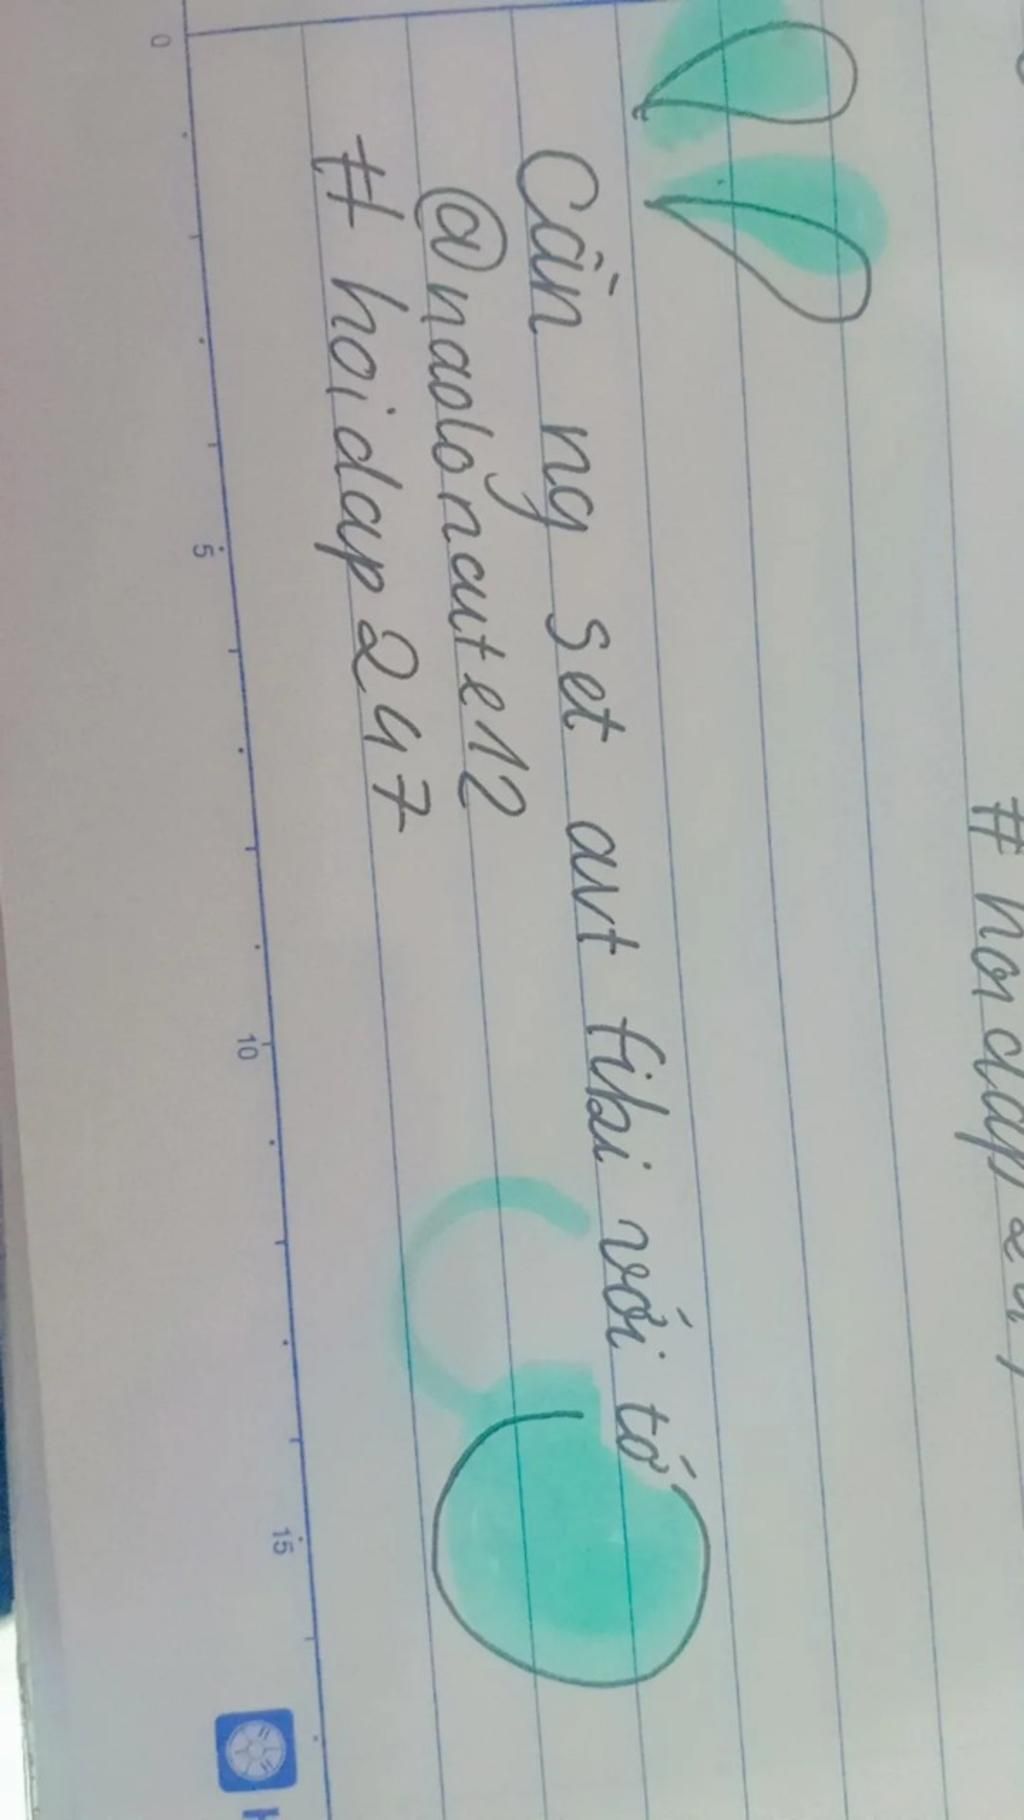 Cần ng set avt fibi với tớ
@naolồncute12
# hoidap247
# hoidap247
0
5
10
15